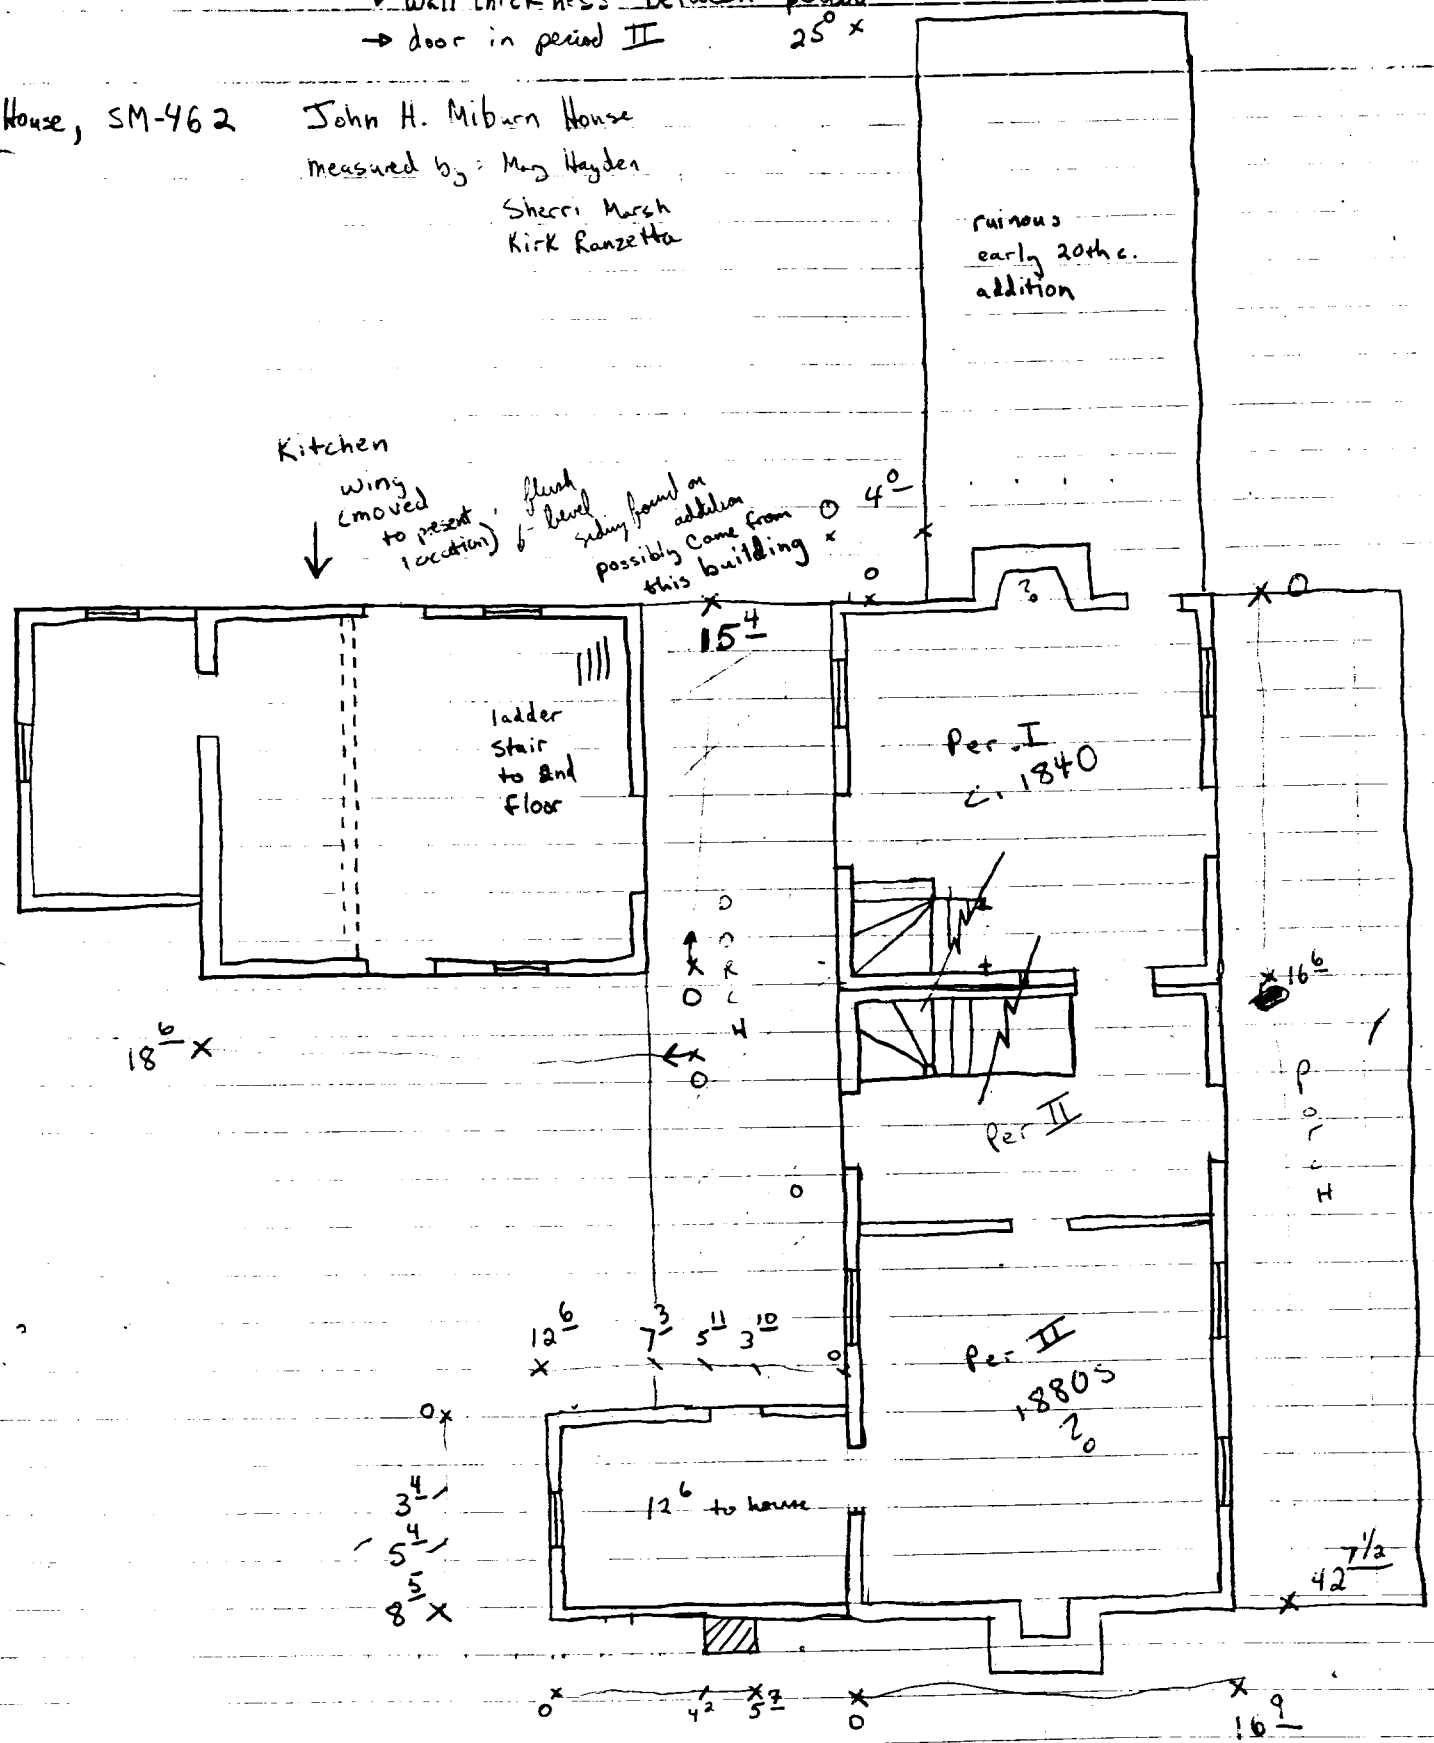 wall thickness between period
→ door in period II
25⁰ x
House, SM-462
John H. Miburn House
measured by: Mary Hayden
Sherri Marsh
Kirk Ranzetta
ruinous
early 20th c.
addition
Kitchen
wing
(moved
to present
location)
flush
bevel
siding found on
addition
possibly came from
this building
O
4⁰
O
?
O
15⁴
ladder
stair
to 2nd
floor
Per. I
c. 1840
PORCH
O
O
16⁶
18⁶ x
PORCH
Per II
O
12⁶ 7³ 5¹¹ 3¹⁰ O
Per II
1880s
?
O x
3⁴
5⁴
8⁵ x
12⁶ to house
42 7 1/2
O 4² 5⁷
O
16⁹